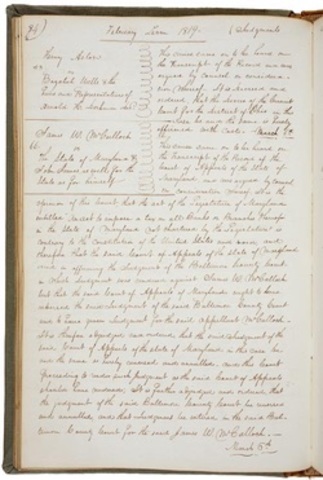 February Term 1819. (Judgments
Henry Astor
vs
This cause came on to be heard on
the Transcript of the Record and was
argued by counsel
ordered, that the decree of the Circuit
Court for the District of Ohio in this
affirmed with costs. March 5th
James W. McCulloch
vs.
The State of Maryland &
John James as well for the
State as for himself
This cause came on to be heard on
the Transcript of the Record of the
Court of Appeals of the State of
Maryland and was argued by counsel
on consideration whereof It is the
opinion of this Court that the act of the Legislature of Maryland
entitled "an act to impose a tax on all Banks or Branches thereof
in the State of Maryland not chartered by the Legislature" is
contrary to the Constitution of the United States and void, and
therefore that the said Court of Appeals of the State of Maryland
erred in affirming the Judgment of the Baltimore County Court
in which Judgment was rendered against James W. McCulloch
but that the said Court of Appeals of Maryland ought to have
reversed the said Judgment of the said Baltimore County Court
and to have given Judgment for the said appellant McCulloch.
It is therefore adjudged and ordered that the said Judgment of the
said Court of Appeals of the State of Maryland in this case be
and the same is hereby reversed and annulled. And this Court
proceeding to render such judgment as the said Court of Appeals
should have rendered. It is further adjudged and ordered that
the judgment of the said Baltimore County Court be reversed
and annulled, and that Judgment be entered in the said Balt-
imore County Court for the said James W. McCulloch.
March 6th